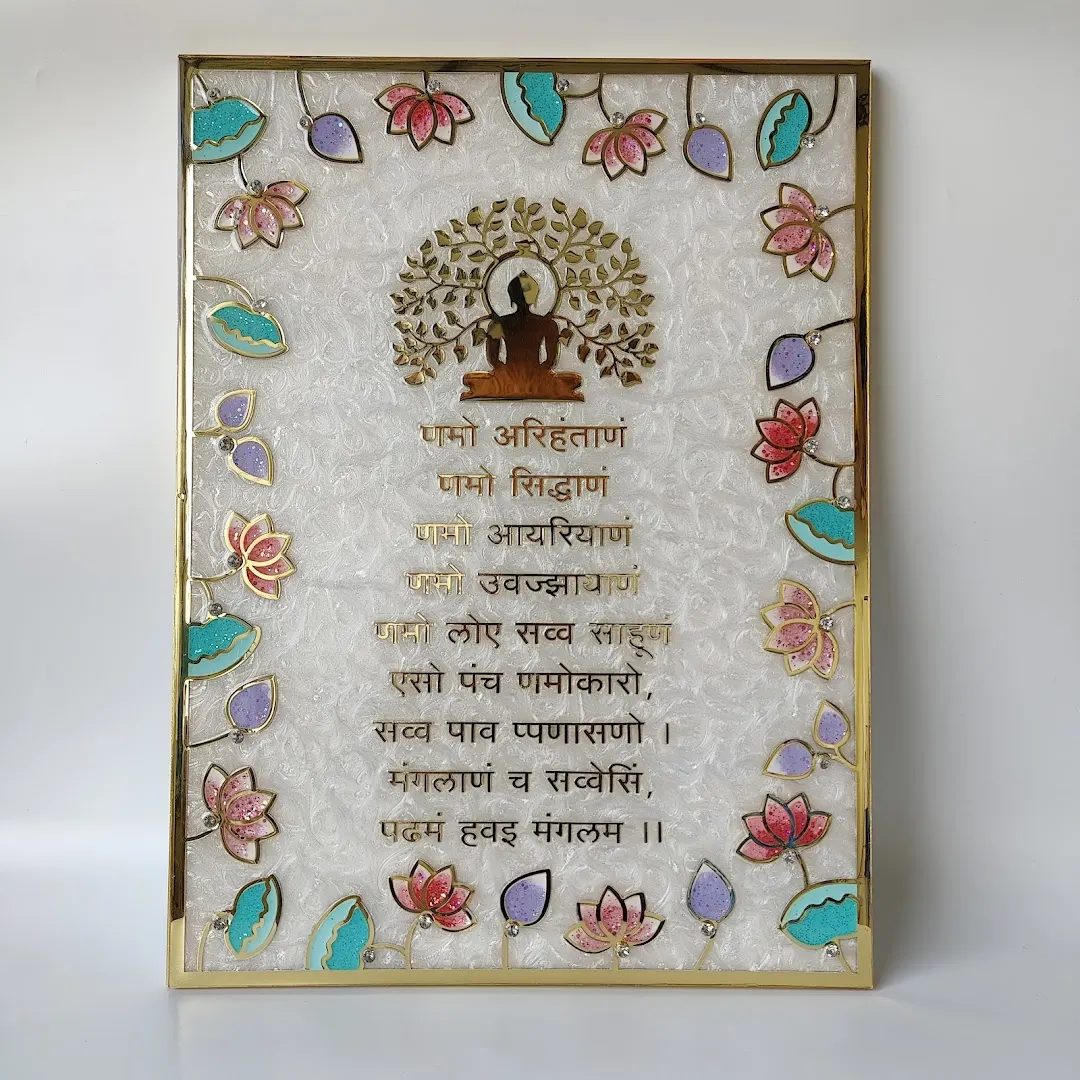 णमो अरिहंताणं
णमो सिद्धाणं
णमो आयरियाणं
णमो उवज्झायाणं
णमो लोए सव्व साहूणं
एसो पंच णमोकारो,
सव्व पाव प्पणासणो ।
मंगलाणं च सव्वेसिं,
पढमं हवइ मंगलम ।।